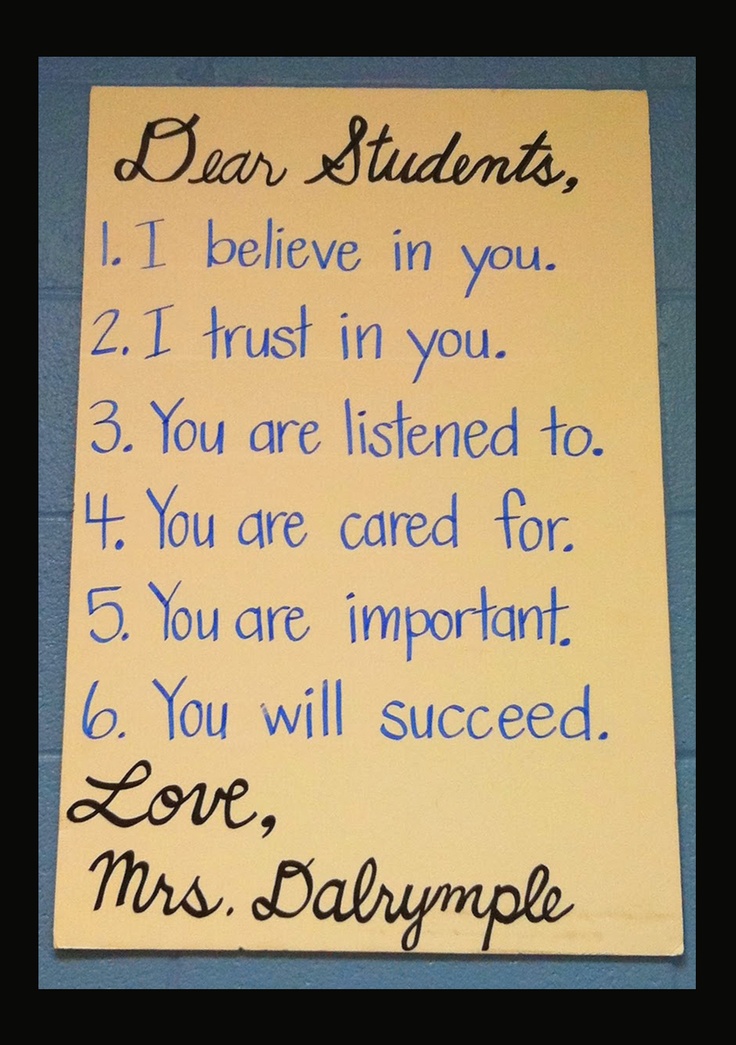 Dear Students,
1. I believe in you.
2. I trust in you.
3. You are listened to.
4. You are cared for.
5. You are important.
6. You will succeed.
Love,
Mrs. Dalrymple